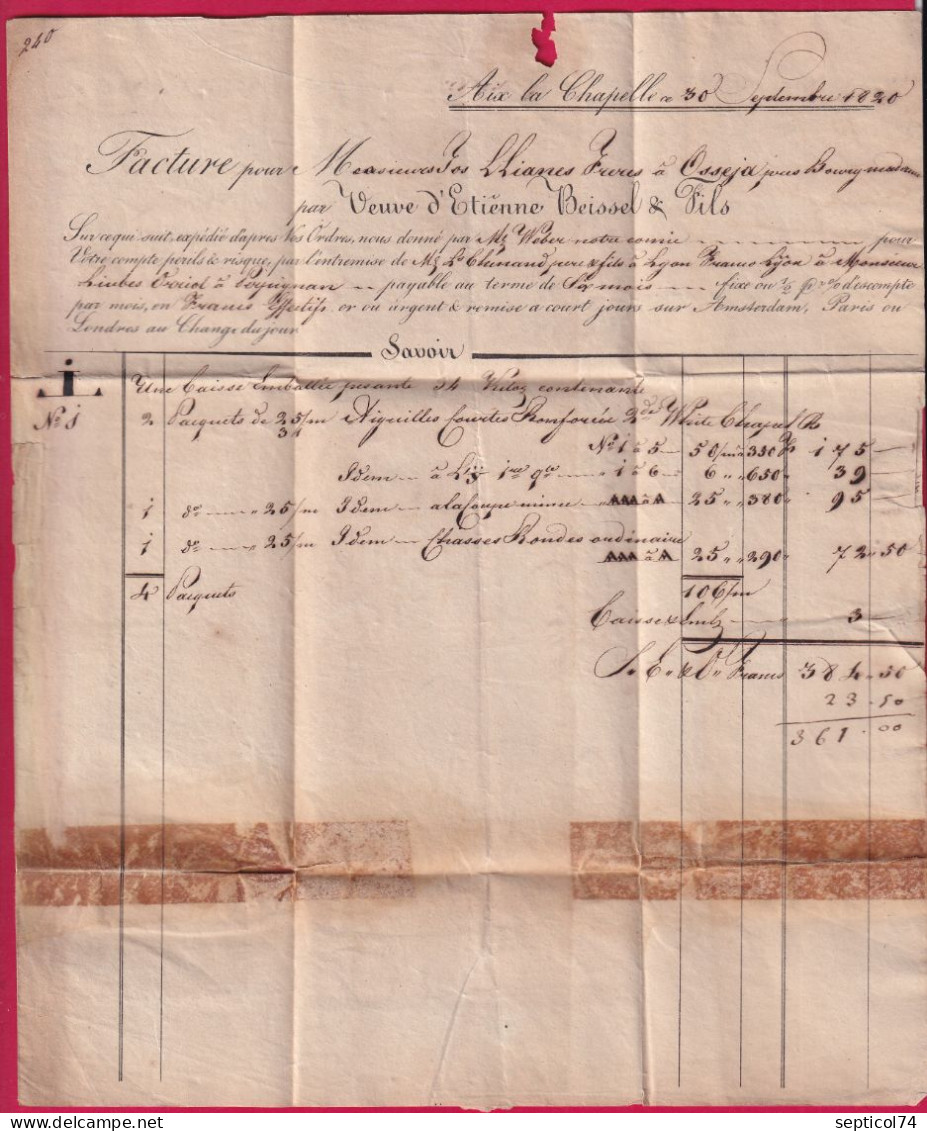 240
Aix la Chapelle ce 30 Septembre 1820
Facture pour Messieurs Jos Llianes Freres à Osseja
par Veuve d'Etienne Beissel & Fils
Sur ce qui suit, expédié d'apres Vos Ordres, nous donné par Mr Weber notre comis pour
Votre compte perils & risque, par l'entremise de Mr pere & fils à Lyon Franco Lyon à Monsieur
à Perpignan payable au terme de Six mois fixe ou d'escompte
par mois, en Francs Effectifs or ou argent & remise a court jours sur Amsterdam, Paris ou
Londres au Change du jour
Savoir
Une Caisse Emballée pesante 34 Kiloz contenante
No 1 2 Pacquets de 25/m Aiguilles Courtes 2de White Chapel
31
No 1 à 5 50/m à 350 175
Idem à 1re qte 1 à 6 6 " " 650 39
1 do " 25/m Idem a la Coupe AAA à A 25 " " 380 95
1 do " 25/m Idem Chasses Rondes ordinaire
AAA à A 25 " " 290 72 " 50
4 Pacquets 106/m
Caisse & Embz 3
S. E. & O. Francs 384 " 50
23.50
361.00
septicol74